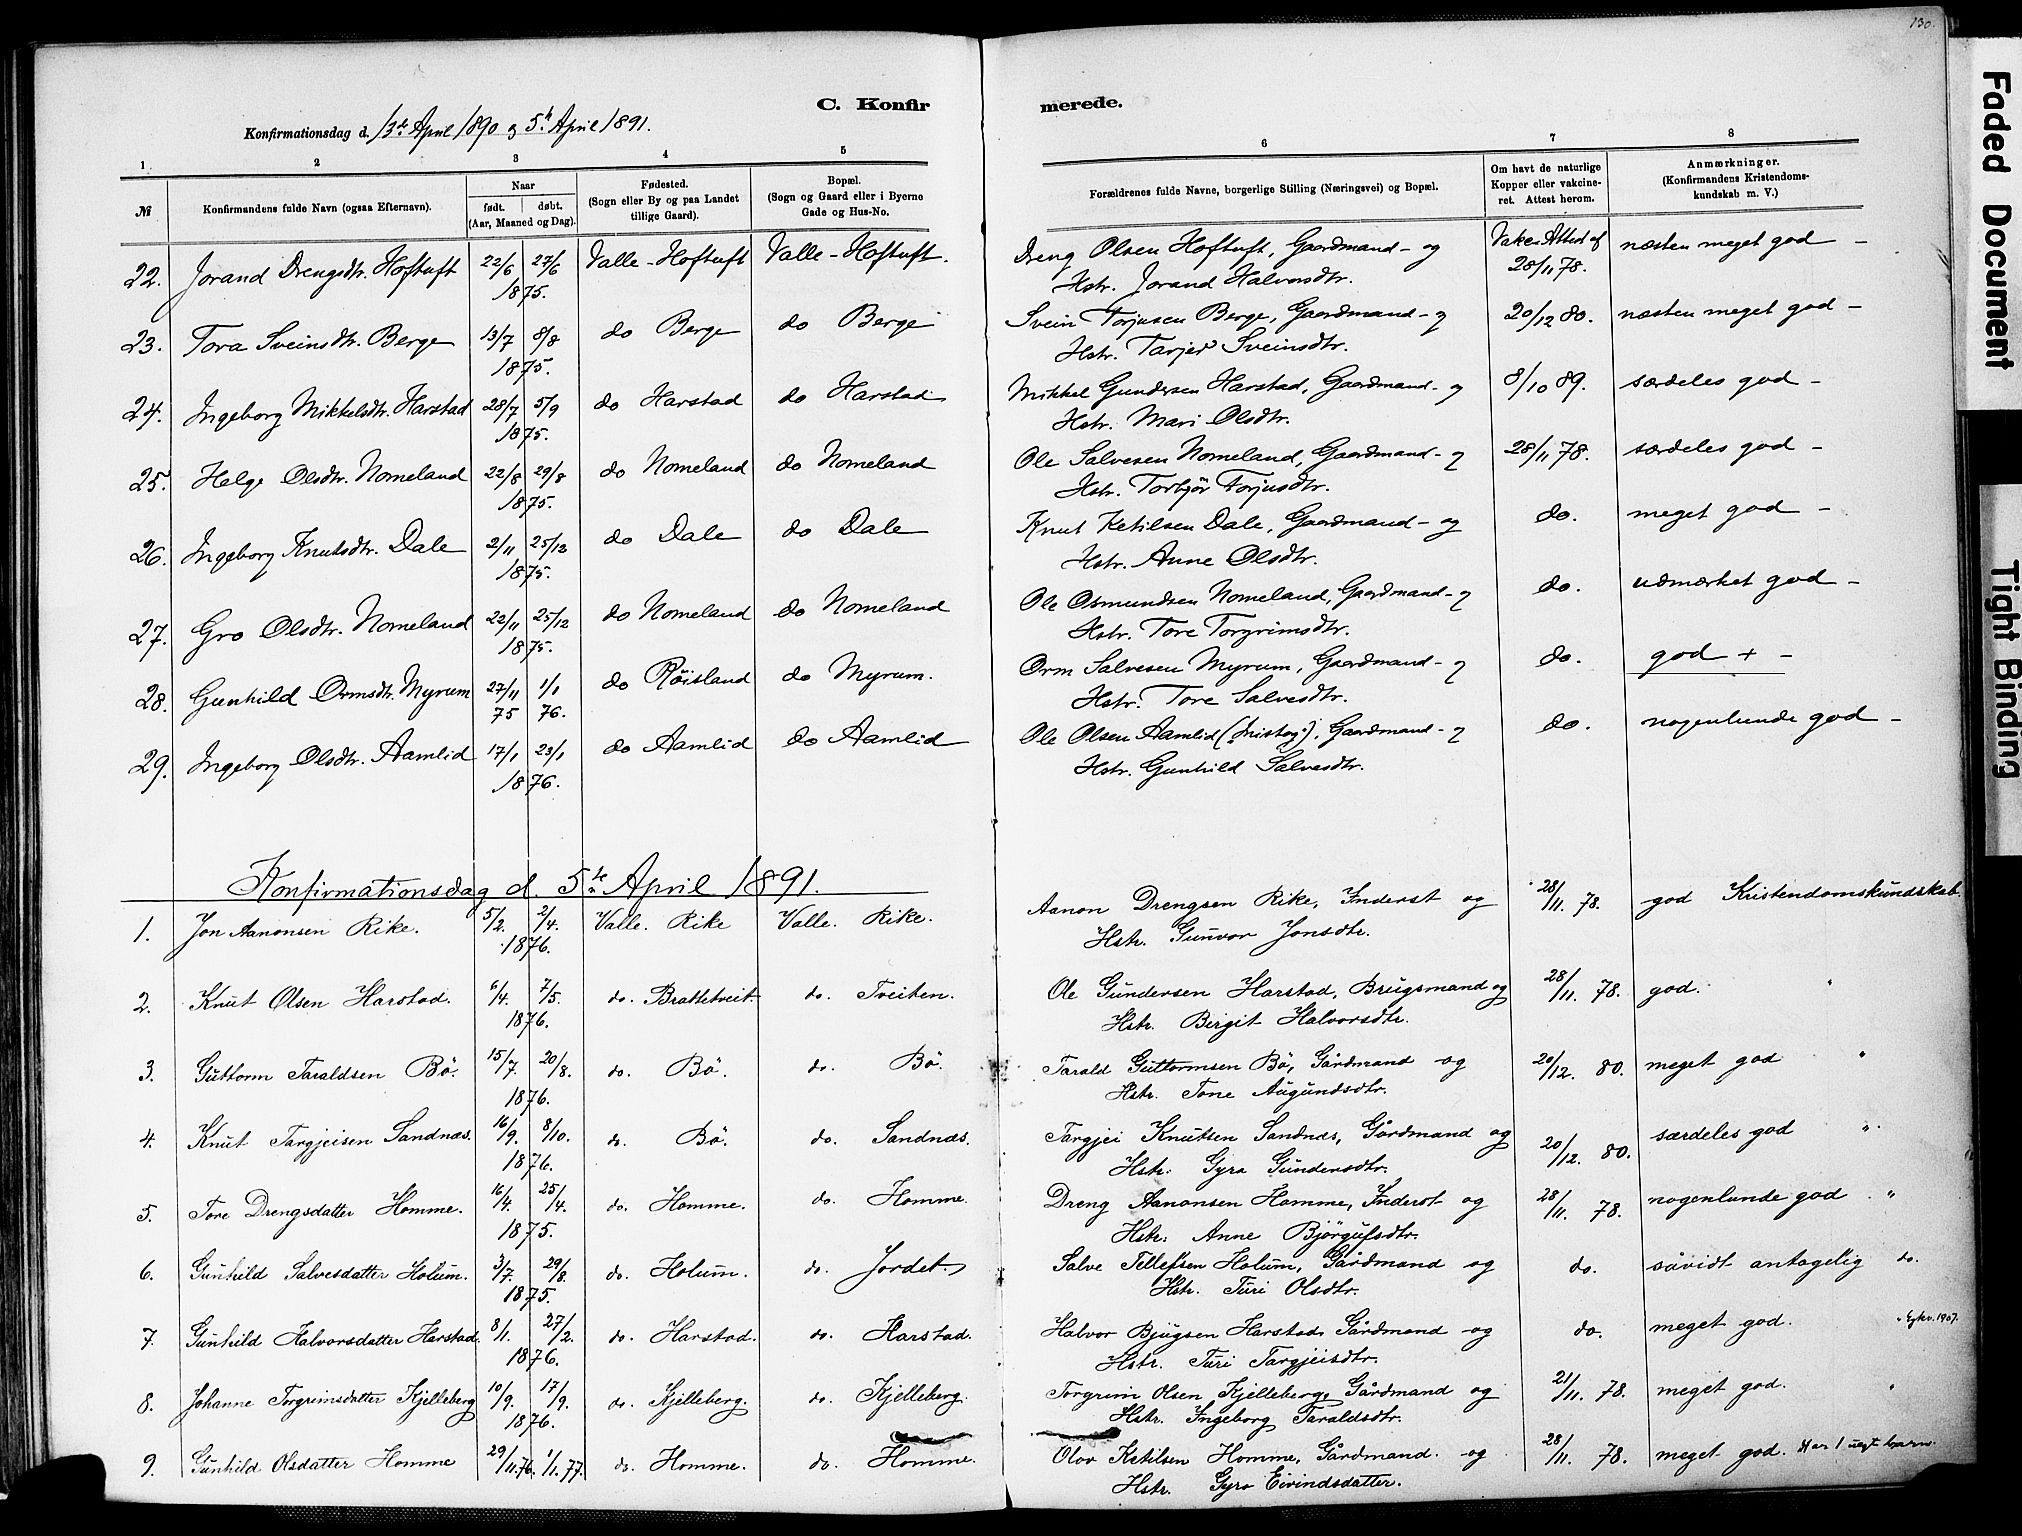 130.
C. Konfir
merede.
Konfirmationsdag d. 13de April 1890 og 5te April 1891.
1. 2 3 4 5 6 7 8
№ Konfirmandens fulde Navn (ogsaa Efternavn). Naar født. døbt. (Aar, Maaned og Dag). Fødested. (Sogn eller By og paa Landet tillige Gaard). Bopæl. (Sogn og Gaard eller i Byerne Gade og Hus-No. Forældrenes fulde Navne, borgerlige Stilling (Næringsvei) og Bopæl. Om havt de naturlige Kopper eller vakcineret. Attest herom. Anmærkninger. (Konfirmandens Kristendomskundskab m. V.)
22. Jorand Drengsdtr. Hoftuft 22/6 27/6 Valle - Hoftuft Valle - Hoftuft. Dreng Olsen Hoftuft, Gaardmand - og Vakc. Attest af næsten meget god -
1875. Hstr. Jorand Halvorsdtr. 28/11 78.
23. Tora Sveinsdtr. Berge 13/7 8/8 do Berge do Berge Svein Torjusen Berge, Gaardmand - og 20/12 80. næsten meget god -
1875. Hstr. Tarjer Sveinsdtr.
24. Ingeborg Mikkelsdtr. Harstad 28/7 5/9 do Harstad do Harstad Mikkel Gundersen Harstad, Gaardmand - og 8/10 89. særdeles god -
1875. Hstr. Mari Olsdtr.
25. Helge Olsdtr. Nomeland 22/8 29/8 do Nomeland do Nomeland Ole Salvesen Nomeland, Gaardmand - og 28/11 78. særdeles god -
1875. Hstr. Torbjør Torjusdtr.
26. Ingeborg Knutsdtr. Dale 2/11 25/12 do Dale do Dale Knut Ketilsen Dale, Gaardmand - og do. meget god -
1875. Hstr. Anne Olsdtr.
27. Gro Olsdtr. Nomeland 22/11 25/12 do Nomeland do Nomeland Ole Osmundsen Nomeland, Gaardmand - og do. udmærket god -
1875. Hstr. Tore Torgrimsdtr.
28. Gunhild Ormsdtr. Myrum 27/11 1/1 do Røisland do Myrum. Orm Salvesen Myrum, Gaardmand - og do. god + -
75 76. Hstr. Tore Salvesdtr.
29. Ingeborg Olsdtr. Aamlid 17/1 23/1 do Aamlid do Aamlid Ole Olsen Aamlid, Gaardmand - og do. nogenlunde god -
1876. Hstr. Gunhild Salvesdtr.
Konfirmationsdag d. 5te April 1891.
1. Jon Aanonsen Rike. 5/2. 2/4. Valle. Rike Valle. Rike. Aanon Drengsen Rike, Inderst og 28/11. 78. god Kristendomskundskab.
1876. Hstr. Gunvor Jonsdtr.
2. Knut Olsen Harstad. 6/4. 7/5. do. Brattetveit. do. Tveiten. Ole Gundersen Harstad, Brugsmand og 28/11. 78. god. "
1876. Hstr. Birgit Halvorsdtr.
3. Guttorm Taraldsen Bö. 15/7. 20/8. do. Bö. do. Bö. Tarald Guttormsen Bö, Gårdmand og 20/12. 80. meget god "
1876. Hstr. Tone Augundsdtr.
4. Knut Targjeisen Sandnæs. 16/9. 8/10. do. Bö. do. Sandnæs. Targjei Knutsen Sandnæs, Gårdmand og 20/12. 80. særdeles god "
1876. Hstr. Gyro Gundersdtr.
5. Tore Drengsdatter Homme. 16/4. 25/4. do. Homme. do. Homme. Dreng Aanonsen Homme, Inderst og 28/11. 78. nogenlunde god "
1875. Hstr. Anne Björgufsdtr.
6. Gunhild Salvesdatter Holum. 3/7. 29/8. do. Holum. do. Jordet. Salve Tellefsen Holum, Gårdmand og do. såvidt antagelig do.
1875. Hstr. Turi Olsdtr.
7. Gunhild Halvorsdatter Harstad. 8/1. 27/2. do. Harstad. do. Harstad. Halvor Bjugsen Harstad, Gårdmand og do. meget god. " 1907.
1876. Hstr. Turi Targjeisdtr.
8. Johanne Torgrimsdatter Kjelleberg 10/9. 17/9. do. Kjelleberg. do. Kjelleberg. Torgrim Olsen Kjelleberg, Gårdmand og 21/11. 78. meget god. "
1876. Hstr. Ingeborg Taraldsdtr.
9. Gunhild Olsdatter Homme 29/11. 76. 1/1. 77. do. Homme. do. Homme. Olav Ketilsen Homme, Gårdmand. og 28/11. 78. meget god. Har 1 uegt barn.
Hstr. Gyro Eivindsdatter.
Faded Document
Tight Binding